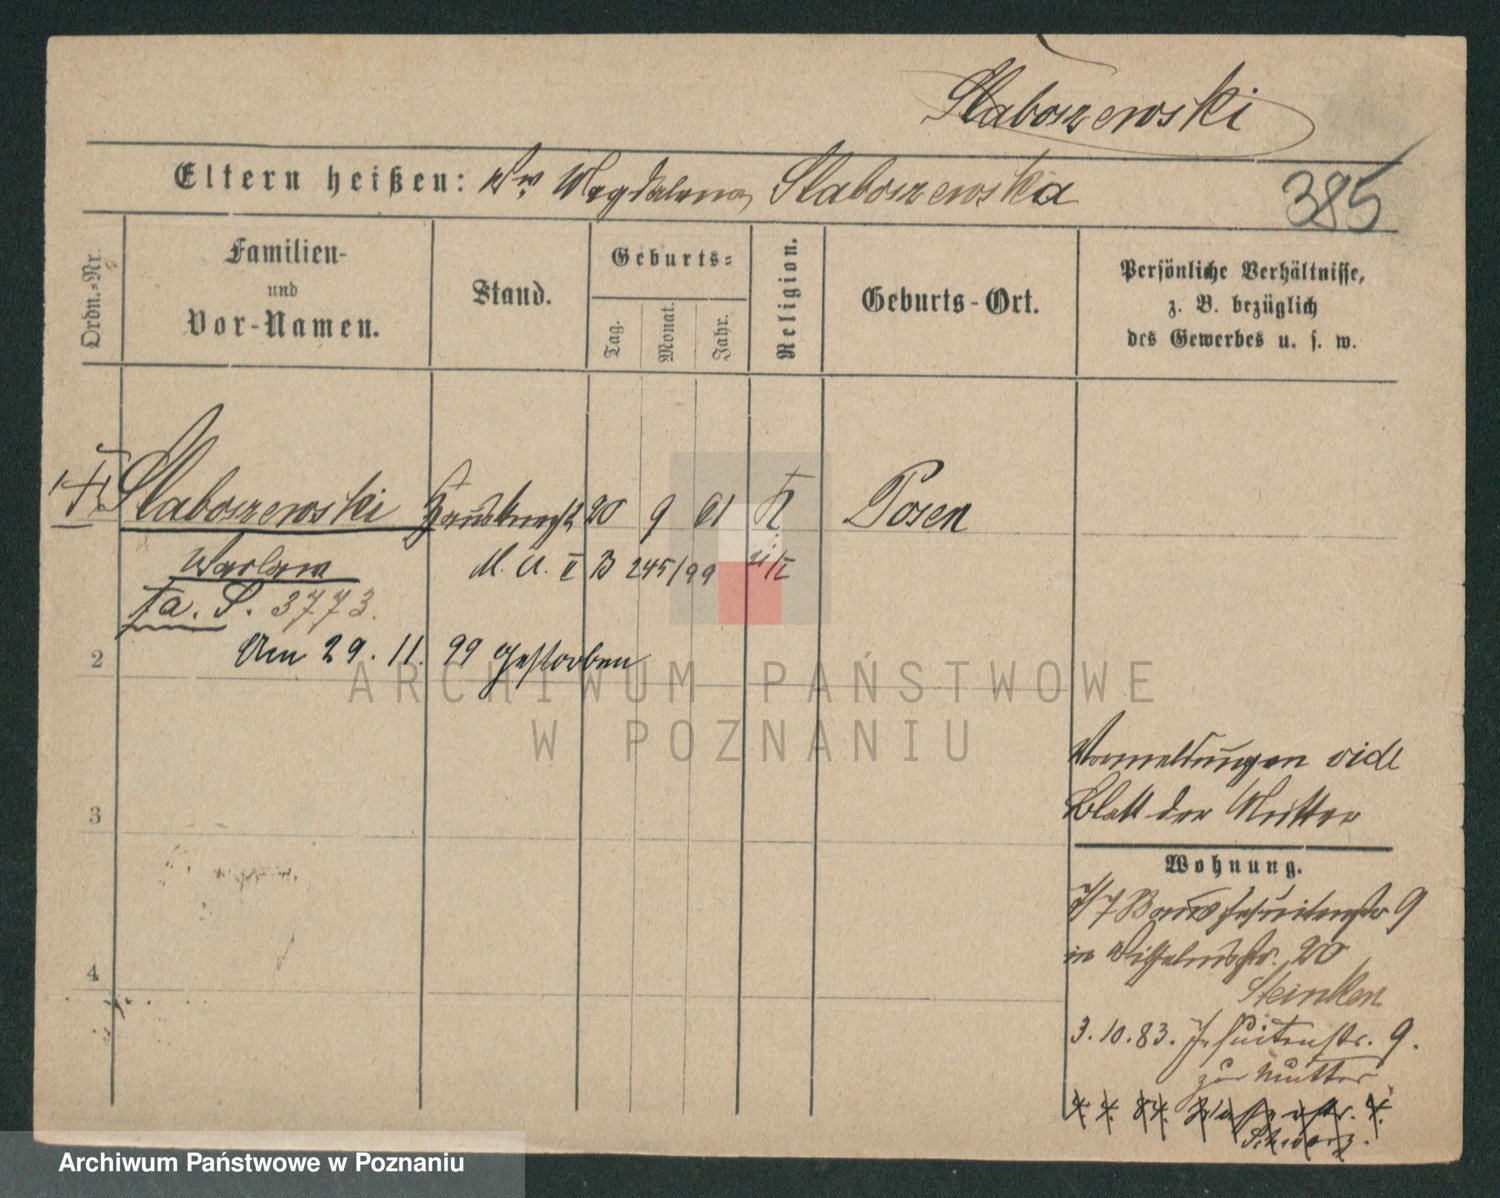 Slaboszewski
Eltern heißen: Ww. Magdalena Slaboszewska
385
Ordn.-Nr.
Familien-
und
Vor-Namen.
Stand.
Geburts-
Tag.
Monat.
Jahr.
Religion.
Geburts-Ort.
Persönliche Verhältnisse,
z. B. bezüglich
des Gewerbes u. s. w.
Slaboszewski Hausknecht 20 9 61 K Posen
M. A. II B 245/99
a. S. 3773.
2
Am 29. 11. 99 gestorben
ARCHIWUM PAŃSTWOWE
W POZNANIU
Vormeldungen vide
Blatt der Mutter
3
Wohnung.
Jesuitenstr 9
in Wilhelmstr. 20
4
Steinken
3. 10. 83. Jesuitenstr. 9.
zur Mutter
Archiwum Państwowe w Poznaniu